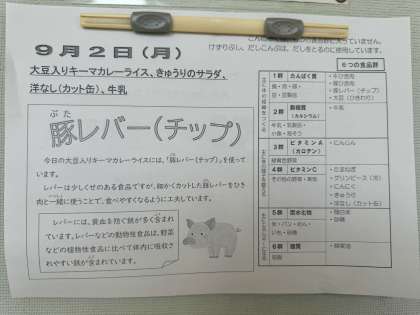 ９月２日（月）
大豆入りキーマカレーライス、きゅうりのサラダ、
洋なし（カット缶）、牛乳
ぶた
豚レバー（チップ）
今日の大豆入りキーマカレーライスには、「豚レバー（チップ）」を使っています。
レバーは少しくせのある食品ですが、細かくカットした豚レバーをひき肉と一緒に使うことで、食べやすくなるように工夫しています。
レバーには、貧血を防ぐ鉄が多く含まれています。レバーなどの動物性食品は、野菜などの植物性食品に比べて体内に吸収されやすい鉄が含まれています。
けずりぶし、だしこんぶは、だしをとるのに使用しています。
６つの食品群
１群 たんぱく質
魚・肉・卵・
豆・豆製品
・牛ひき肉
・豚ひき肉
・豚レバー（チップ）
・大豆（ひきわり）
２群 無機質
（カルシウム）
牛乳・乳製品・
小魚・海そう
・牛乳
３群 ビタミンＡ
（カロテン）
緑黄色野菜
・にんじん
４群 ビタミンＣ
その他の野菜・果物
・たまねぎ
・グリンピース（冷）
・にんにく
・きゅうり
・洋なし（カット缶）
５群 炭水化物
米・パン・めん・
いも・砂糖
・精白米
・砂糖
６群 脂質